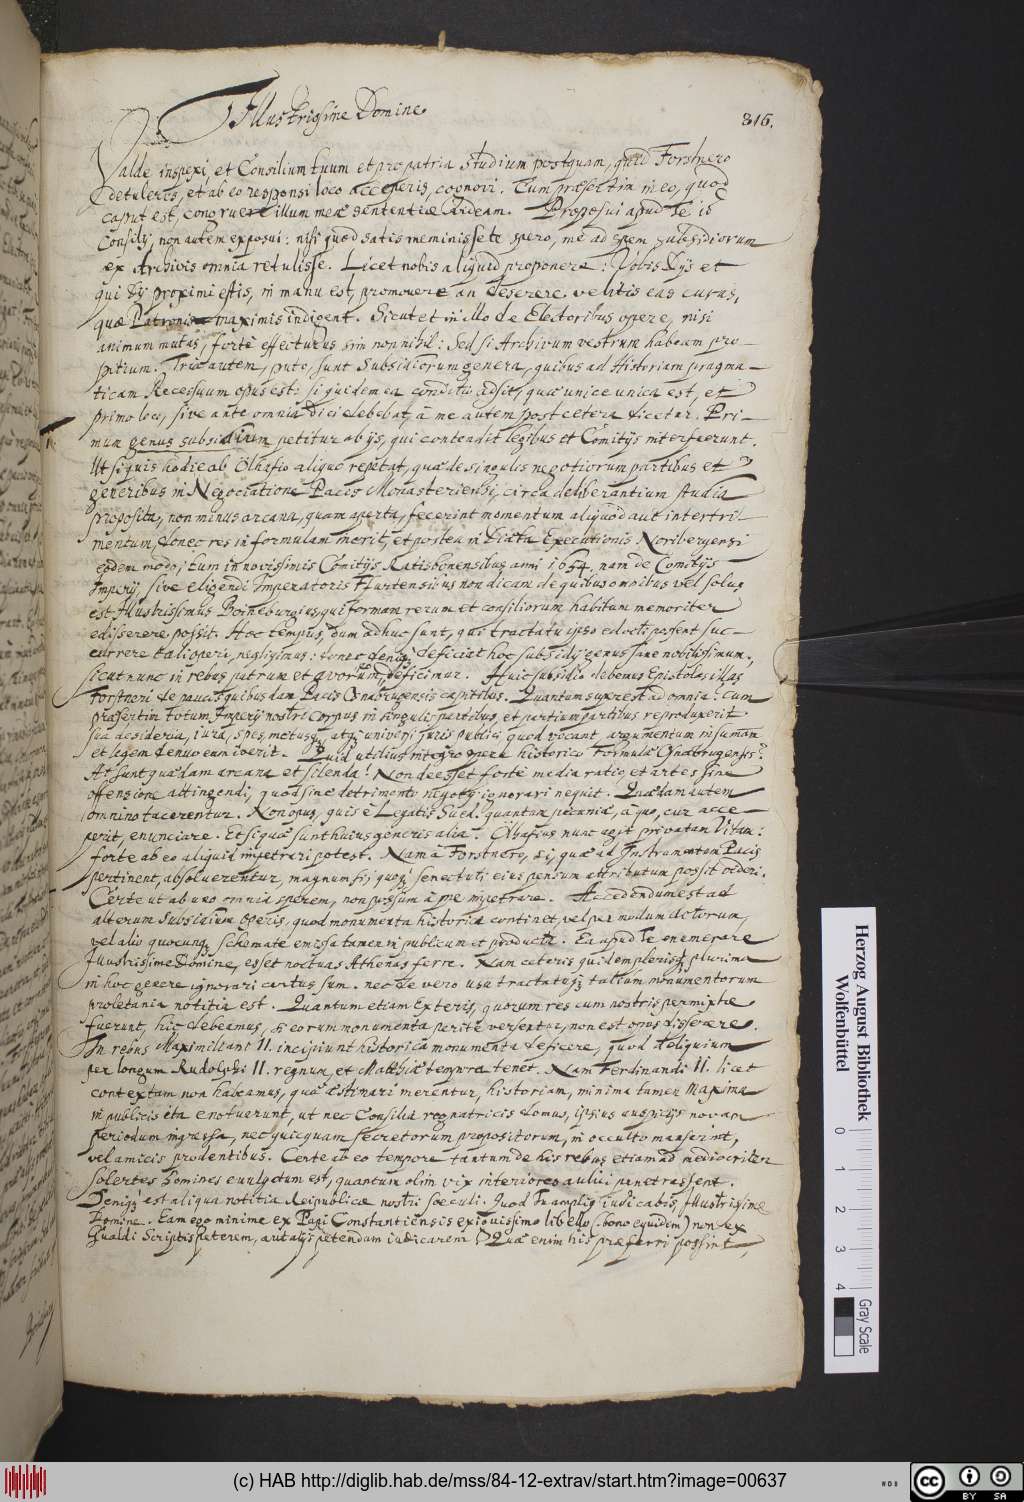 Illustrissime Domine
316.
Valde inspexi, et Consilium tuum et pro patria studium postquam, quid Forstnero
detuleris, et ab eo responsi loco acceperis, cognovi. Cum præsertim in eo, quod
caput est, congruere illum meæ sententiæ videam. Proposui apud Te id
Consilij, non autem exposui: nisi quod satis meminisse te spero, me ad spem subsidiorum
ex Archivis omnia retulisse. Licet nobis aliquid proponere: Vobis Dijs et
qui Dijs proximi estis, in manu est, promovere an deserere velitis eas curas,
quæ Patronis maximis indigent. Sicut et in illo de Electoribus opere, nisi
animum mutas, forte effecturus sim nonnihil: Sed si Archivum vestrum habeam pro-
pitium. Tria autem, puto, sunt Subsidiorum genera, quibus ad Historiam pragma-
ticam Recessuum opus est: siquidem ea conditio adsit, quæ unice unica est, et
primo loco, sive ante omnia dici debebat, à me autem post cetera dicetur. Pri-
mum genus subsidiorum petitur ab ijs, qui contendis legibus et Comitijs interfuerunt.
Ut si quis hodie ab Olhafio aliquo repetat, quæ de singulis negotiorum partibus et
generibus in Negociatione Pacis Monasteriensi, circa deliberantium studia
proposita, non minus arcana, quam aperta, fecerint momentum aliquod aut intertri-
mentum, donec res in formulam inerit, et postea in Diæta Executionis Noribergensi
eodem modo, tum in novissimis Comitijs Ratisbonensibus anni 1654. nam de Comitijs
Imperij, sive eligendi Imperatoris Francfurtensibus non dicam de quibus omnibus vel solus
est Illustrissimus Boineburgius, qui formam rerum et consiliorum habitum memoriter
edisserere possit. Hoc tempus, dum adhuc sunt, qui tractatu ipso edocti possent suc-
currere tali operi, negligimus: donec denique deficiat hoc subsidij genus sane nobilissimum,
sicut nunc in rebus patrum et avorum deficimur. Huic subsidio debemus Epistolas illas
Forstneri de paucis quibusdam Pacis Osnabrugensis capitibus. Quantum superest ad omnia? cum
præsertim totum Imperij nostri corpus in singulis partibus, et partium partibus reproduxerit
sua desideria, iura, spes, metusque, atque universi juris publici quod vocant, argumentum in suman
et legem denuo eum iverit. Quid utilius integro opere historico Formulæ Osnabrugensis?
At sunt quædam arcana et silenda! Non deesset forte media ratio, et artes sine
offensione attingendi, quod sine detrimento negotij ignorari nequit. Quædam autem
omnino tacerentur. Non opus, quis è Legatis Sued. quantum pecuniæ, à quo, cur acce-
perit, enunciare. Et si quæ sunt huius generis alia. Olhafius nunc agit privatam vitam:
forte ab eo aliquid impetrari potest. Nam à Forstnero, si, quæ ad Instrumentum Pacis
pertinent, absolverentur, magnum sij quoque senectuti eius pensum attributum possit videri.
Certe ut ab uno omnia sperem, non possum à me impetrare. Accedendum est ad
alterum Subsidium Operis, quod monumenta historica continet, vel per modum dotorum,
vel alio quocunque schemate emissa tamen in publicum et producta. Ea apud Te enumerare
Illustrissime Domine, esset noctuas Athenas ferre. Nam ceteris quidem plerisque plurima
in hoc genere ignorari certus sum. nec de vero usu tractatusque talium monumentorum
proletaria notitia est. Quantum etiam Exteris, quorum res cum nostris permixtæ
fuerunt, hic debeamus, si eorum monumenta perite versentur, non est opus disserere.
In rebus Maximiliani II. incipiunt historica monumenta deficere, quod deliquium
per longum Rudolphi II. regnum, et Matthiæ tempora tenet. Nam Ferdinandi II. licet
contextam non habeamus, quæ æstimari merentur, historiam, minima tamen maxima
in publicis ita enotuerunt, ut nec Consilia regnatricis domus, ipsius auspicijs novam
periodum ingressa, nec quicquam secretorum propositorum, in occulto manserint,
vel amicis prodentibus. Certe ab eo tempore tantum de his rebus etiam ad mediocriter
solertes homines evulgatum est, quantum olim vix interiores aulici penetrassent.
Denique est aliqua notitia Reipublicæ nostri sæculi. Quod Tu amplius iudicabis, Illustrissime
Domine. Eam ego minime ex Pagi Constantiensis exiguissimo libello (bono equidem) non ex
Gualdi Scriptis peterem, aut alijs petendam iudicarem. Quæ enim his præferri possint,
Herzog August Bibliothek
Wolfenbüttel
0 1 2 3 4
Gray Scale
(c) HAB http://diglib.hab.de/mss/84-12-extrav/start.htm?image=00637
CC BY SA